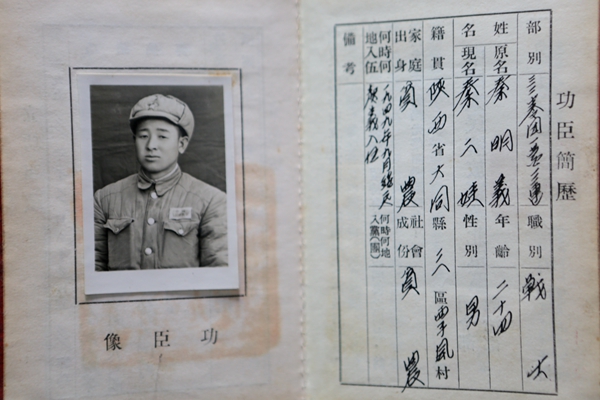 功臣簡歷
部別 團一營三連 職別 戰士
姓名 原名 秦明義 年齡 二十四
現名 秦娃 性別 男
籍貫 陝西省大同縣區村
家庭出身 貧農 社會成份 貧農
何時何地入伍 一九四九年九月綏遠起義入伍 何時何地入黨(團)
備考
功臣像